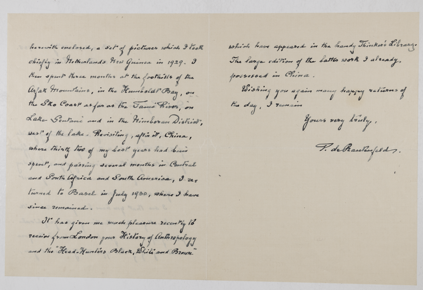 herewith enclosed, a set of pictures which I took
chiefly in Netherlands New Guinea in 1929. I
then spent three months at the foothills of the
Arfak Mountains, in the Humboldt Bay, on
the Coast as far as the Tami River, on
Lake Sentani and in the Nimboran District,
west of the lake. Revisiting, after it, China,
where thirty two of my best years had been
spent, and passing several months in Central
and South Africa and South America, I re-
turned to Basel in July 1930, where I have
since remained.
It has given me much pleasure recently to
receive from London your History of Anthropology
and the "Head-Hunters Black, White and Brown"
which have appeared in the handy Thinker's Library.
The large edition of the latter work I already
possessed in China.
Wishing you again many happy returns of
the day, I remain
Yours very truly,
P. de Rautenfeld.